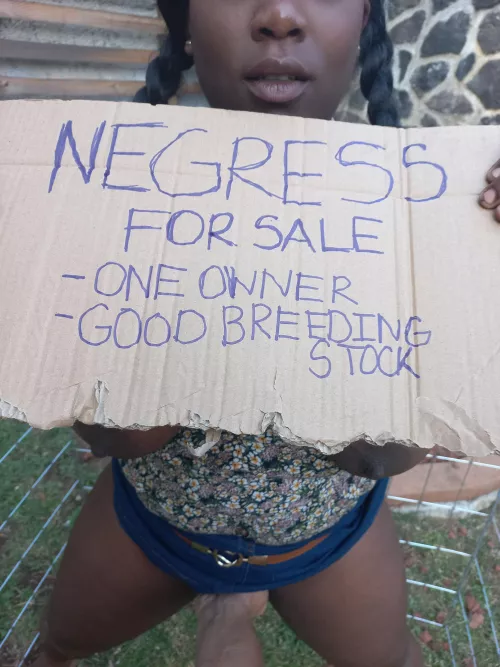 NEGRESS
FOR SALE
-ONE OWNER
-GOOD BREEDING
STOCK